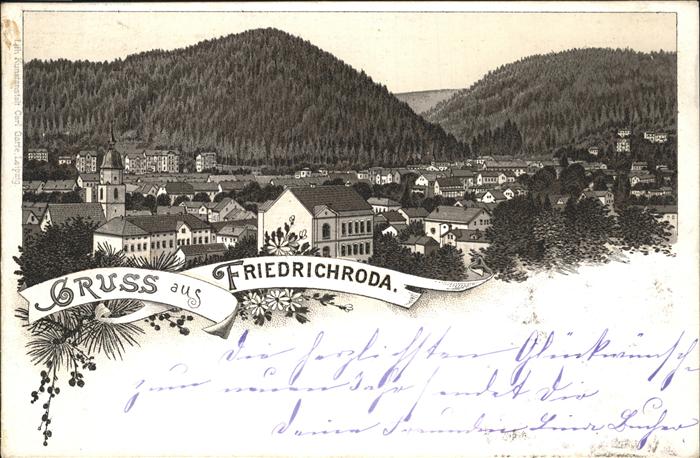 Lith. Kunstanstalt Carl Garte Leipzig
GRUSS aus
FRIEDRICHRODA.
Die herzlichsten Glückwünsche
zum neuen Jahr sendet Dir
Deine Freundin